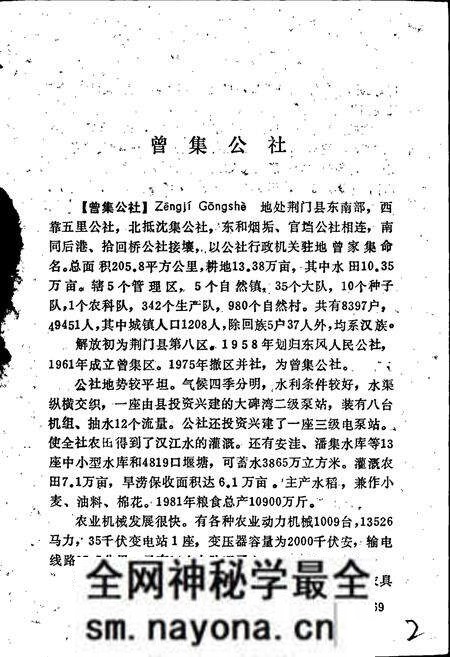 曾集公社
【曾集公社】Zēngjí Gōngshè 地处荆门县东南部，西
靠五里公社，北抵沈集公社，东和烟垢、官垱公社相连，南
同后港、拾回桥公社接壤，以公社行政机关驻地曾家集命
名。总面积205.8平方公里，耕地13.38万亩，其中水田10.35
万亩。辖5个管理区，5个自然镇，35个大队，10个种子
队，1个农科队，342个生产队，980个自然村。共有8397户，
49451人，其中城镇人口1208人，除回族5户37人外，均系汉族。
解放初为荆门县第八区。1958年划归东风人民公社，
1961年成立曾集区。1975年撤区并社，为曾集公社。
公社地势较平坦。气候四季分明，水利条件较好，水渠
纵横交织，一座由县投资兴建的大碑湾二级泵站，装有八台
机组、抽水12个流量。公社还投资兴建了一座三级电泵站。
使全社农田得到了汉江水的灌溉。还有安洼、潘集水库等13
座中小型水库和4819口堰塘，可蓄水3865万立方米。灌溉农
田7.1万亩，旱涝保收面积达6.1万亩。主产水稻，兼作小
麦、油料、棉花。1981年粮食总产10900万斤。
农业机械发展很快。有各种农业动力机械1009台，13526
马力，35千伏变电站1座，变压器容量为2000千伏安，输电
线路
具
69
全网神秘学最全
sm.nayona.cn
2